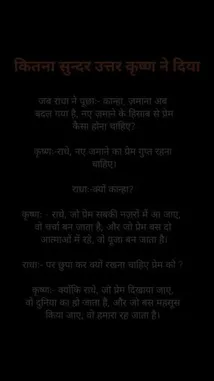 कितना सुन्दर उत्तर कृष्ण ने दिया
जब राधा ने पूछा:- कान्हा, ज़माना अब
बदल गया है, नए ज़माने के हिसाब से प्रेम
कैसा होना चाहिए?
कृष्ण:-राधे, नए ज़माने का प्रेम गुप्त रहना
चाहिए।
राधा:-क्यों कान्हा?
कृष्ण: - राधे, जो प्रेम सबकी नज़रों में आ जाए,
वो चर्चा बन जाता है, और जो प्रेम बस दो
आत्माओं में रहे, वो पूजा बन जाता है।
राधा:- पर छुपा कर क्यों रखना चाहिए प्रेम को ?
कृष्ण:- क्योंकि राधे, जो प्रेम दिखाया जाए,
वो दुनिया का हो जाता है, और जो बस महसूस
किया जाए, वो हमारा रह जाता है।